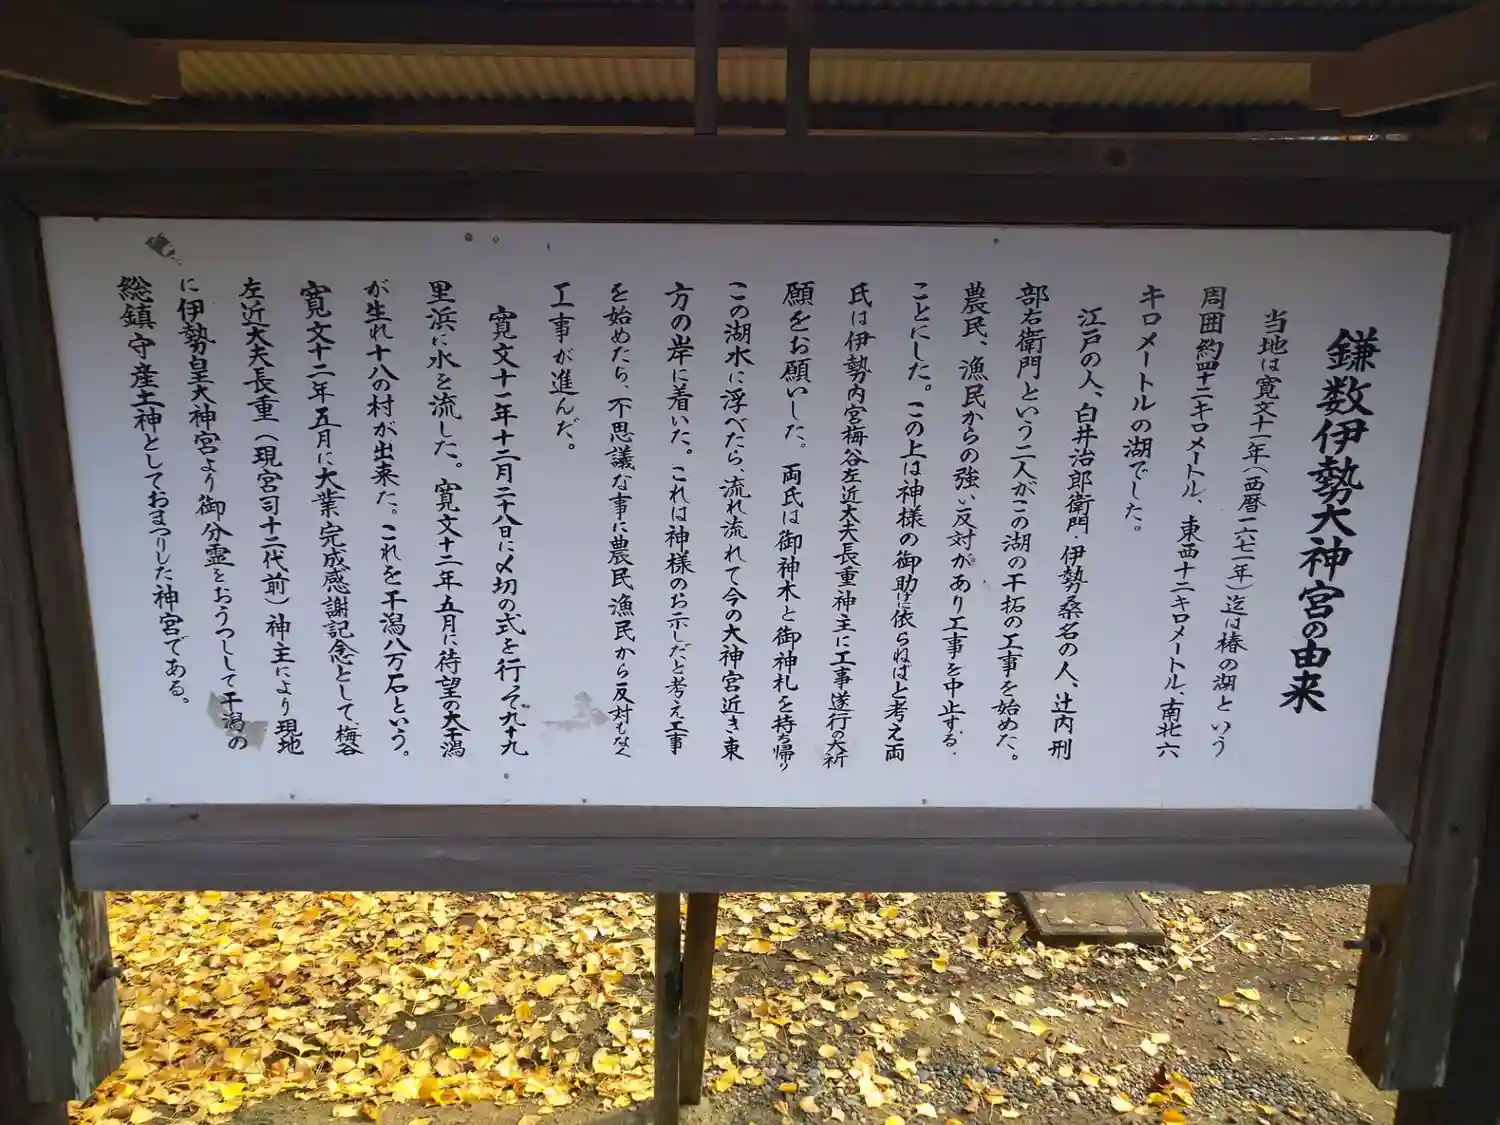 鎌数伊勢大神宮の由来
当地は寛文十一年(西暦一六七一年)迄は椿の湖という
周囲約四十二キロメートル、東西十二キロメートル、南北六
キロメートルの湖でした。
江戸の人、白井治郎衛門・伊勢桑名の人、辻内刑
部右衛門という二人がこの湖の干拓の工事を始めた。
農民、漁民からの強い反対があり工事を中止する
ことにした。この上は神様の御助けに依らねばと考え両
氏は伊勢内宮梅谷左近大夫長重神主に工事遂行の大祈
願をお願いした。両氏は御神木と御神札を持ち帰り
この湖水に浮べたら、流れ流れて今の大神宮近き東
方の岸に着いた。これは神様のお示しだと考え工事
を始めたら、不思議な事に農民漁民から反対もなく
工事が進んだ。
寛文十一年十二月二十八日に〆切の式を行って九十九
里浜に水を流した。寛文十二年五月に待望の大干潟
が生れ十八の村が出来た。これを干潟八万石という。
寛文十二年五月に大業完成感謝記念として、梅谷
左近大夫長重(現宮司十二代前)神主により現地
に伊勢皇大神宮より御分霊をおうつしして干潟の
総鎮守産土神としておまつりした神宮である。